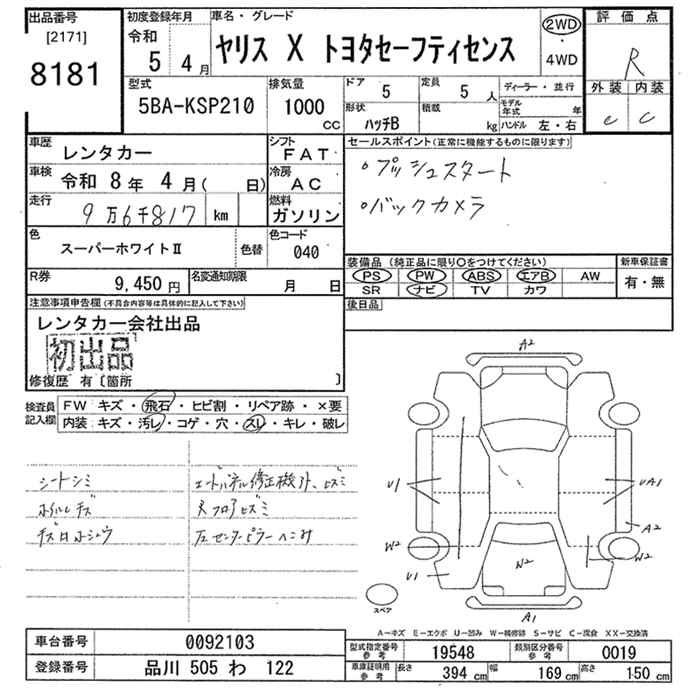 出品番号
[2171]
8181
初度登録年月
令和
5年 4月
車名・グレード
ヤリス X トヨタセーフティセンス
2WD
・
4WD
評価点
R
外装 内装
e c
型式
5BA-KSP210
排気量
1000
CC
ドア
5
定員
5人
形状
ハッチB
積載
kg
ディーラー・並行
モデル年式 年
ハンドル 左・右
車歴
レンタカー
シフト
FAT
車検
令和 8年 4月( 日)
冷房
AC
走行
9万6千817 km
燃料
ガソリン
色
スーパーホワイトⅡ
色替
色コード
040
R券
9,450円
名変通知期限
月 日
セールスポイント(正常に機能するものに限ります)
・プッシュスタート
・バックカメラ
装備品(純正品に限り○をつけてください)
PS PW ABS エアB AW
SR ナビ TV カワ
新車保証書
有・無
後日品
注意事項申告欄(不具合内容等は具体的に記入して下さい)
レンタカー会社出品
初出品
修復歴 有〔箇所 〕
検査員
記入欄
FW キズ・飛石・ヒビ割・リペア跡・×要
内装 キズ・汚レ・コゲ・穴・スレ・キレ・破レ
シートシミ
ホイルキズ
キズ凹ホシュウ
エードパネル修正機アト、ヒズミ
Rフロアヒズミ
左センターピラーヘコミ
A2
U1
UA1
A2
W2
W2
W2
U1
A1
スペア
A-キズ E-エクボ U-凹み W-補修跡 S-サビ C-腐食 XX-交換済
車台番号
0092103
登録番号
品川 505 わ 122
型式指定番号
参考
19548
類別区分番号
参考
0019
車庫証明用
参考
長さ 394 cm 幅 169 cm 高さ 150 cm